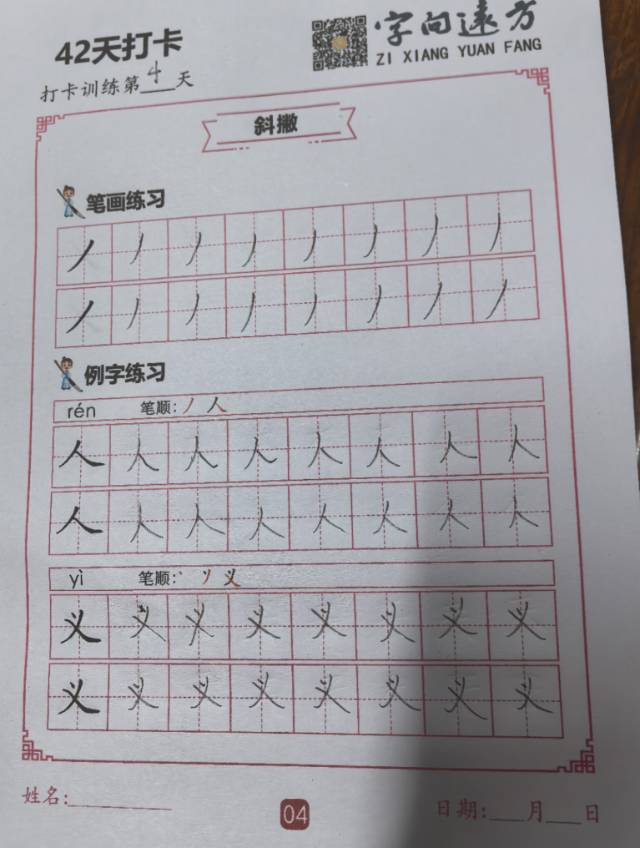 42天打卡
字向远方
ZI XIANG YUAN FANG
打卡训练第4天
斜撇
笔画练习
丿丿丿丿丿丿丿丿
丿丿丿丿丿丿丿丿
例字练习
rén 笔顺:丿人
人人人人人人人人
人人人人人人人人
yì 笔顺:丶丷义
义义义义义义义义
义义义义义义义义
姓名:________
04
日期:___月___日